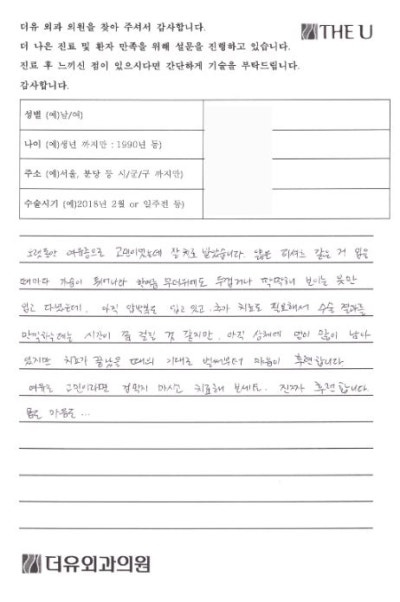 더유 외과 의원을 찾아 주셔서 감사합니다.
THE U
더 나은 진료 및 환자 만족을 위해 설문을 진행하고 있습니다.
진료 후 느끼신 점이 있으시다면 간단하게 기술을 부탁드립니다.
감사합니다.
성별 (예)남/여)
나이 (예)생년 까지만 : 1990년 등)
주소 (예)서울, 분당 등 시/군/구 까지만)
수술시기 (예)2018년 2월 or 일주전 등)
오랫동안 여유증으로 고민이었는데 잘 치료 받았습니다. 얇은 티셔츠 같은 거 입을
때마다 가슴이 튀어나와 한여름 무더위에도 두껍거나 딱딱해 보이는 옷만
입고 다녔는데, 아직 압박복을 입고 있고, 추가 치료도 필요해서 수술 결과를
시간이 좀 걸릴 것 같지만, 아직 상체에 멍이 많이 남아
있지만 치료가 끝났을 때의 기대로 벌써부터 마음이 후련합니다
여유증 고민이라면 걱정치 마시고 치료해 보세요. 진짜 후련합니다.
몸은 마음을 ...
더유외과의원